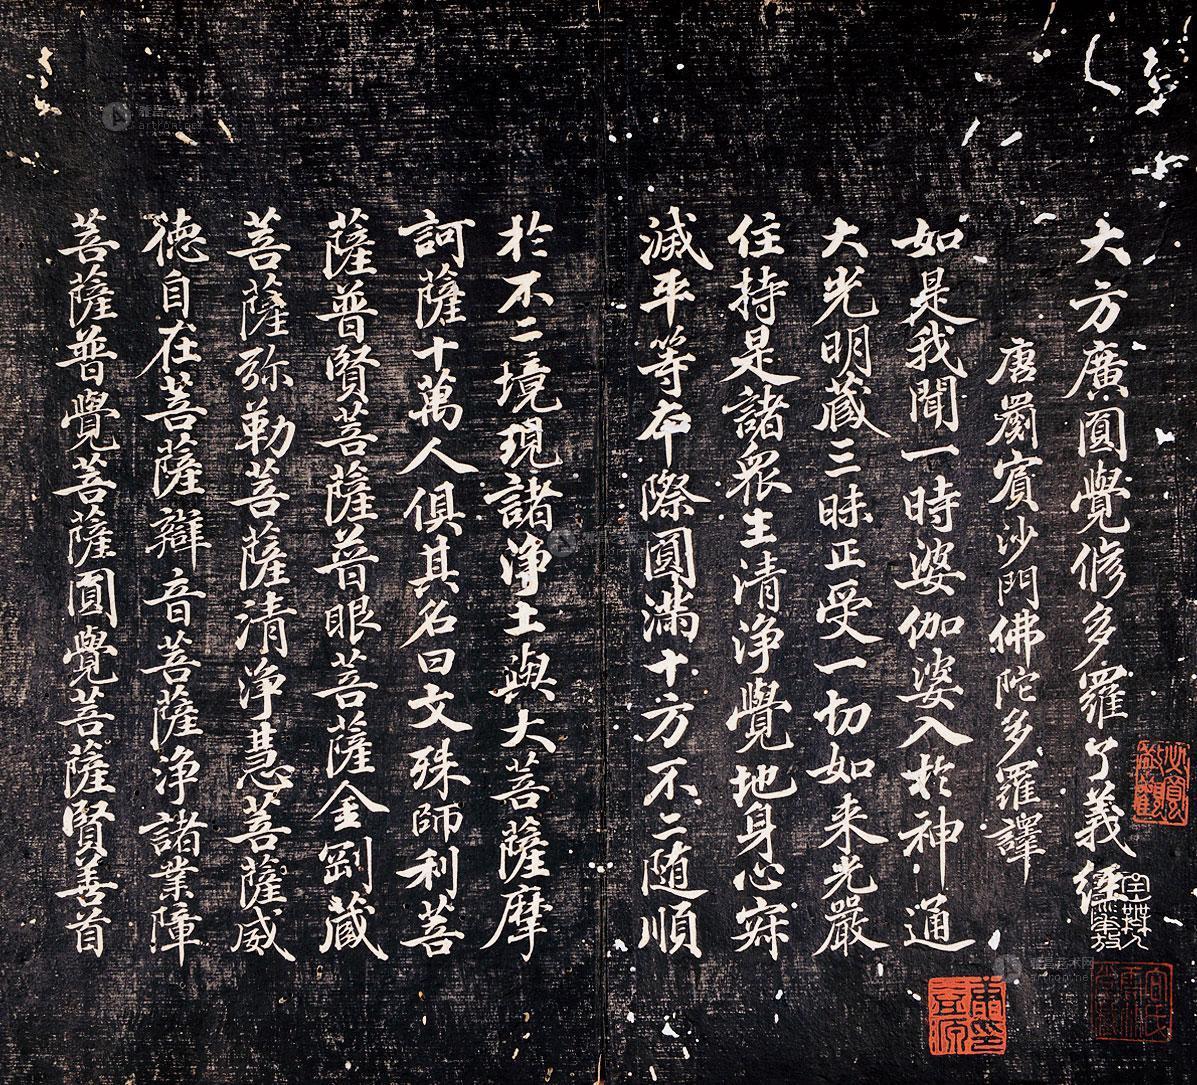 大方廣圓覺修多羅了義經
唐罽賓沙門佛陀多羅譯
如是我聞一時婆伽婆入於神通
大光明藏三昧正受一切如来光嚴
住持是諸衆生清淨覺地身心寂
滅平等本際圓滿十方不二随順
於不二境現諸淨土與大菩薩摩
訶薩十萬人俱其名曰文殊師利菩
薩普賢菩薩普眼菩薩金剛藏
菩薩弥勒菩薩清淨慧菩薩威
德自在菩薩辯音菩薩淨諸業障
菩薩普覺菩薩圓覺菩薩賢善首